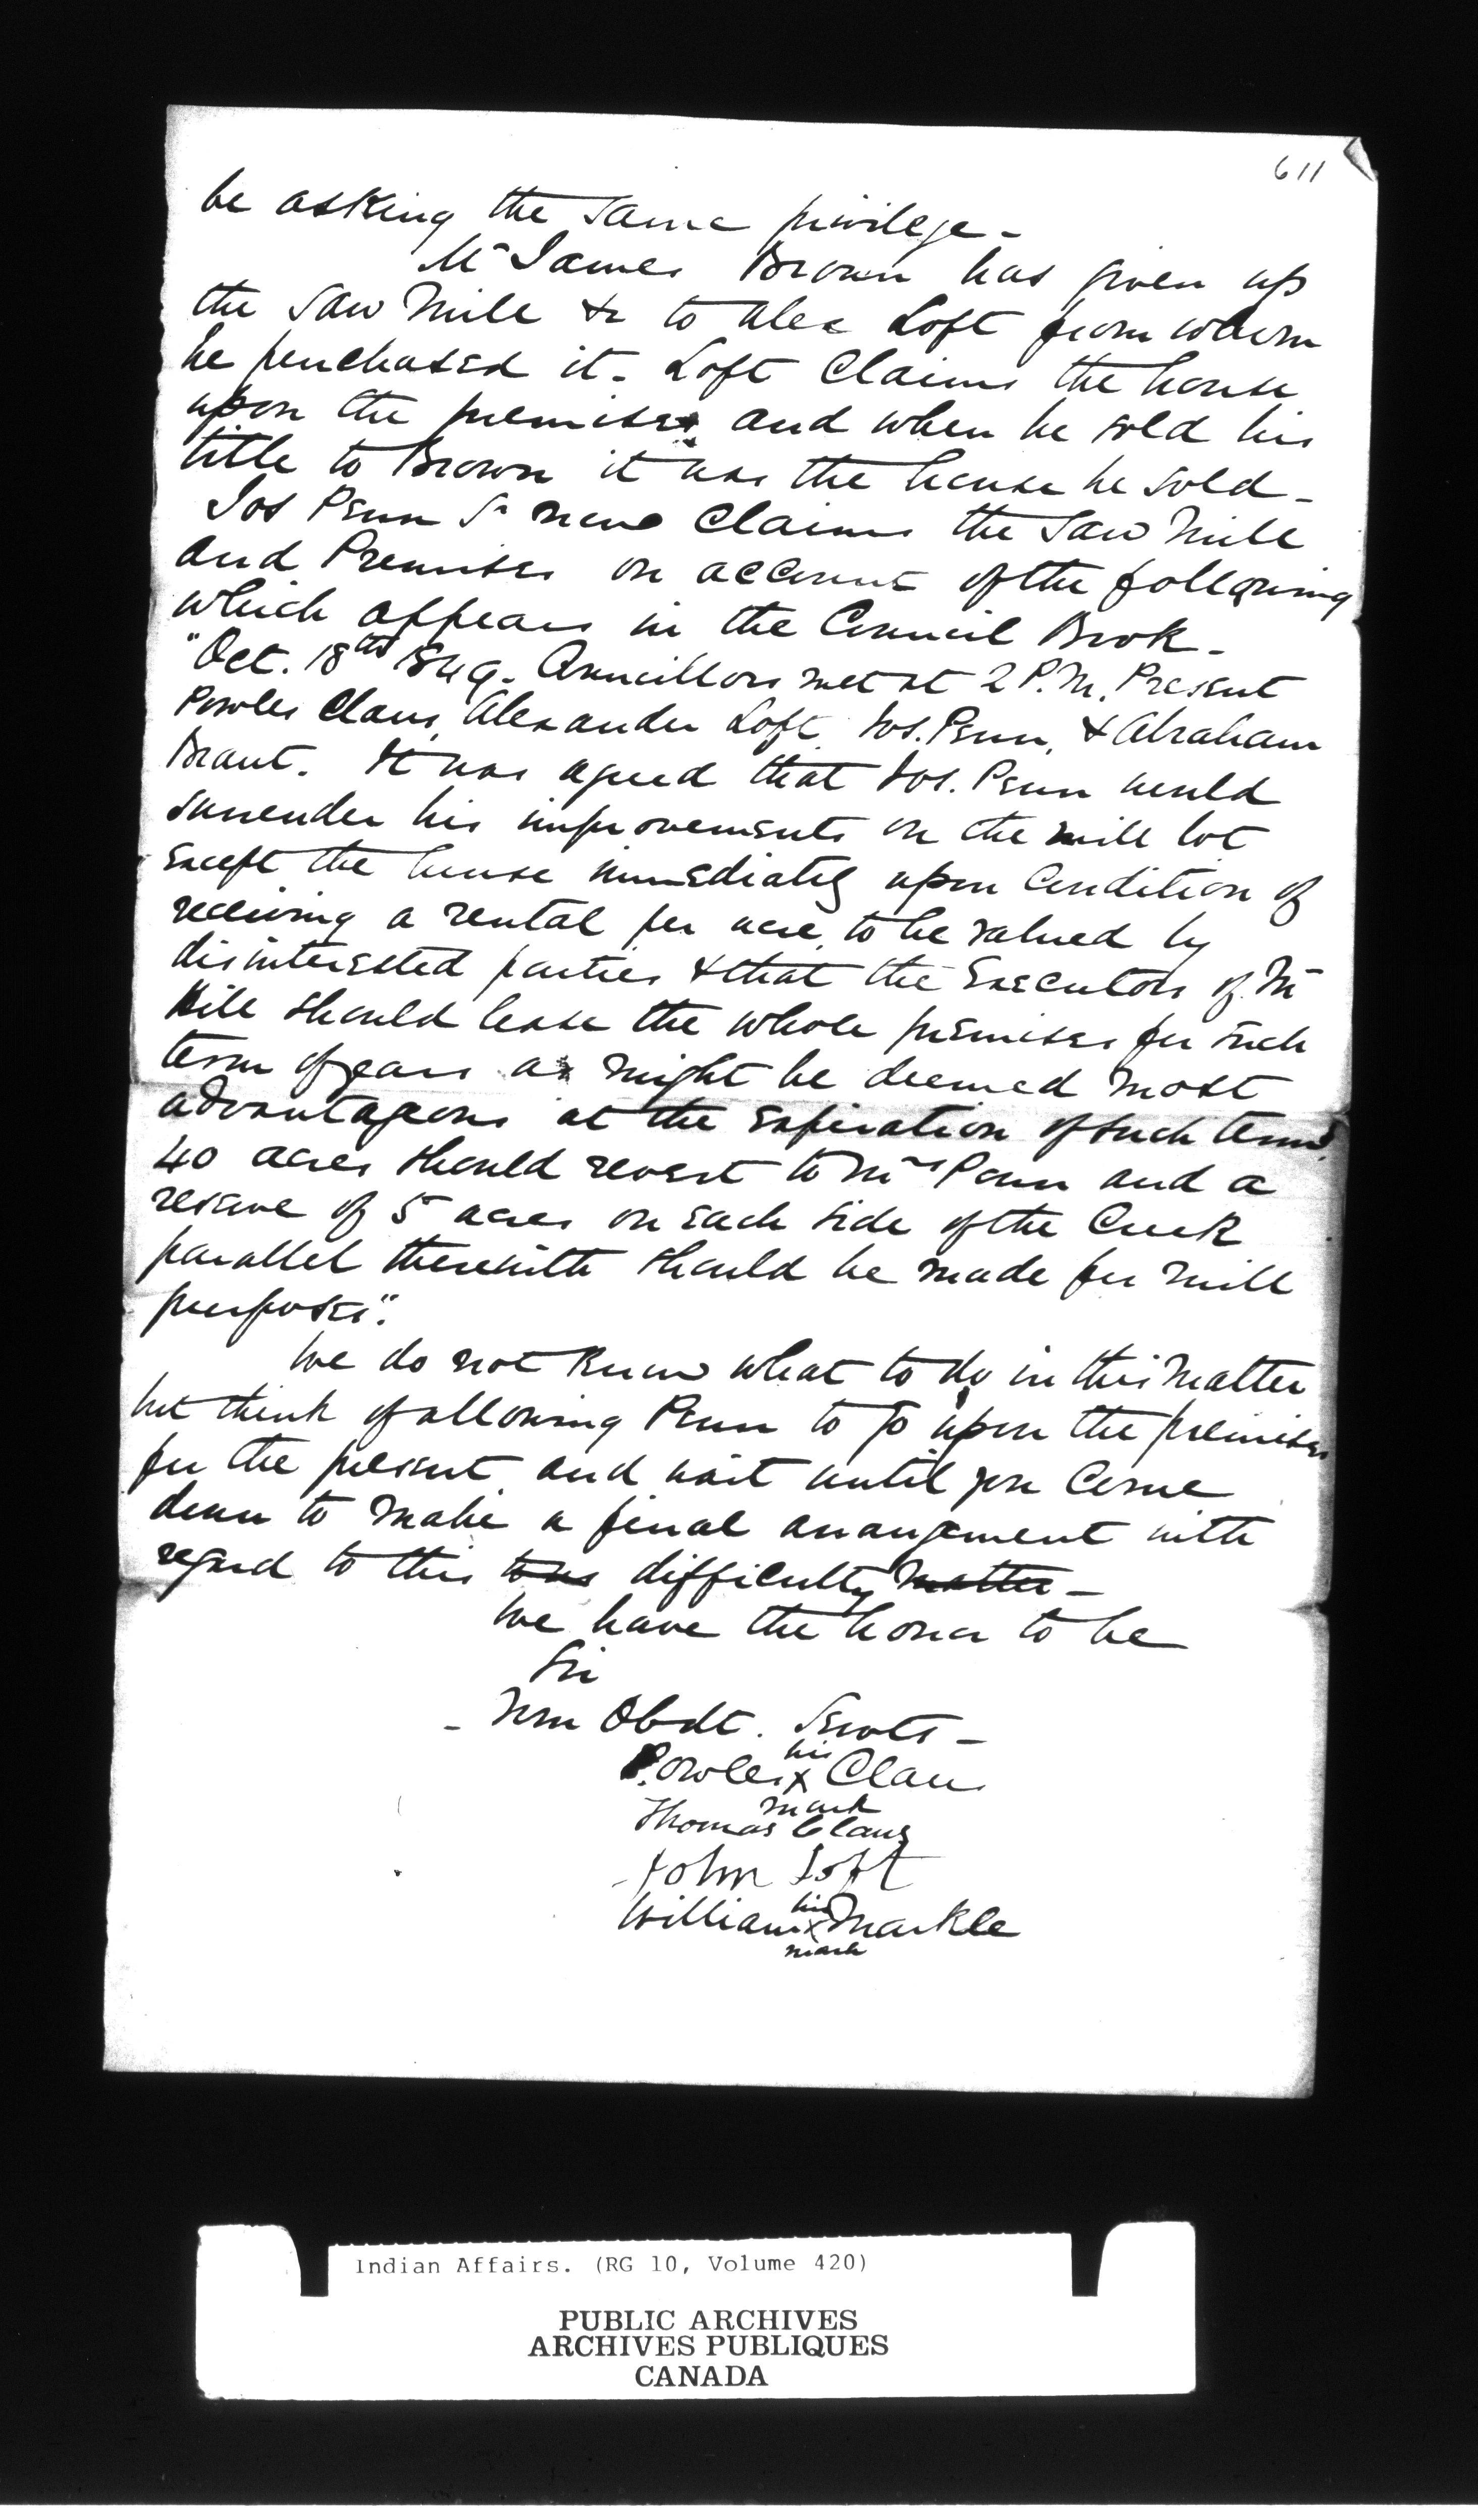 611
be asking the same privilege -
Mr James Brown has given up
the Saw Mill &c to Alex Loft from whom
he purchased it - Loft Claims the house
upon the premises and when he sold his
title to Brown it was the house he sold -
Jos Penn Sr now Claims the Saw Mill
and Premises on account of the following
which appears in the Council Book -
"Oct. 18th 1849 - Councillors met at 2 P.M. Present
Powles Claus, Alexander Loft, Jos. Penn, & Abraham
Brant. It was agreed that Jos. Penn would
surrender his improvements on the mill lot
except the house immediately upon Condition of
receiving a rental per acre, to be valued by
disinterested parties & that the Executors of Mr
Hill should lease the whole premises for such
term of years as might be deemed most
advantageous at the expiration of such term
40 acres should revert to Mrs Penn and a
reserve of 5 acres on each side of the Creek
parallel therewith should be made for mill
purposes".
We do not know what to do in this Matter
but think of allowing Penn to go upon the premises
for the present and wait until you Come
down to make a final arrangement with
regard to this difficulty matter -
We have the honor to be
Sir
- Your Obdt. Servts -
his
Powles x Claus
mark
Thomas Claus
John Loft
his
William x Markle
mark
Indian Affairs. (RG 10, Volume 420)
PUBLIC ARCHIVES
ARCHIVES PUBLIQUES
CANADA